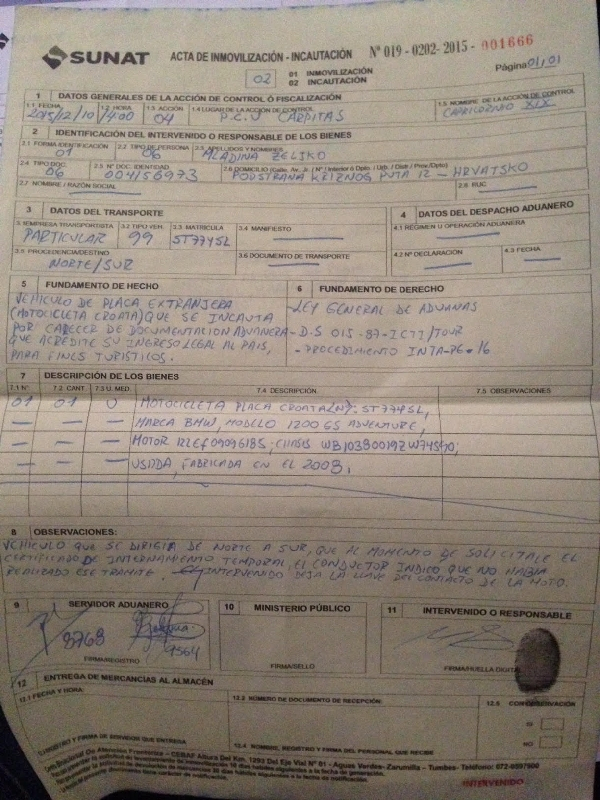 SUNAT ACTA DE INMOVILIZACIÓN - INCAUTACIÓN Nº 019-0202-2015-001666
02 01 INMOVILIZACIÓN
02 INCAUTACIÓN
Página 01/01
1 DATOS GENERALES DE LA ACCIÓN DE CONTROL Ó FISCALIZACIÓN
1.1. FECHA 1.2. HORA 1.3. ACCIÓN 1.4 LUGAR DE LA ACCIÓN DE CONTROL 1.5. NOMBRE DE LA ACCIÓN DE CONTROL
2015/12/10 /4:00 04 P.C.U CARPITAS CAPRICORNIO XIX
2 IDENTIFICACIÓN DEL INTERVENIDO O RESPONSABLE DE LOS BIENES
2.1 FORMA IDENTIFICACIÓN 2.2 TIPO DE PERSONA 2.3 APELLIDOS Y NOMBRES
01 06 ALADINA ZELJKO
2.4 TIPO DOC. 2.5 Nº DOC. IDENTIDAD 2.6 DOMICILIO (Calle, Av. Jr. / Nº / Interior ó Dpto. / Urb. / Distr / Prov./Dpto)
06 004156973 PODSTRANA KRIZNOG PUTA 12 - HRVATSKO
2.7 NOMBRE / RAZÓN SOCIAL 2.8 RUC
3 DATOS DEL TRANSPORTE
4 DATOS DEL DESPACHO ADUANERO
3.1 EMPRESA TRANSPORTISTA 3.2 TIPO VEH. 3.3 MATRÍCULA 3.4 MANIFIESTO
4.1 RÉGIMEN U OPERACIÓN ADUANERA
PARTICULAR 99 ST774SL
3.5 PROCEDENCIA/DESTINO 3.6 DOCUMENTO DE TRANSPORTE
4.2 Nº DECLARACIÓN 4.3 FECHA
NORTE/SUR
5 FUNDAMENTO DE HECHO
VEHICULO DE PLACA EXTRANJERA
(MOTOCICLETA CROATA) QUE SE INCAUTA
POR CARECER DE DOCUMENTACION ADUANERA
QUE ACREDITE SU INGRESO LEGAL AL PAIS,
PARA FINES TURISTICOS.
6 FUNDAMENTO DE DERECHO
- LEY GENERAL DE ADUANAS
- D.S 015-87-ICTI/TOUR
- PROCEDIMIENTO INTA-PG-16
7 DESCRIPCIÓN DE LOS BIENES
7.1 Nº 7.2 CANT. 7.3 U. MED. 7.4 DESCRIPCIÓN 7.5 OBSERVACIONES
01 01 U MOTOCICLETA PLACA CROATA (N): ST774SL,
MARCA BMW, MODELO 1200 GS ADVENTURE,
MOTOR 122EF09096185, CHASIS
USADA, FABRICADA EN EL 2008,
8 OBSERVACIONES:
VEHICULO QUE SE DIRIGIA DE NORTE A SUR, QUE AL MOMENTO DE SOLICITALE EL
CERTIFICADO DE INTERNAMIENTO TEMPORAL, EL CONDUCTOR INDICO QUE NO HABIA
REALIZADO ESE TRAMITE. EL INTERVENIDO DEJA LA LLAVE DEL CONTACTO DE LA MOTO.
9 SERVIDOR ADUANERO
8768 9564
FIRMA/REGISTRO
10 MINISTERIO PÚBLICO
FIRMA/SELLO
11 INTERVENIDO O RESPONSABLE
FIRMA/HUELLA DIGITAL
12 ENTREGA DE MERCANCIAS AL ALMACÉN
12.1 FECHA Y HORA: 12.2 NÚMERO DE DOCUMENTO DE RECEPCIÓN:
SI
NO
REGISTRO Y FIRMA DE SERVIDOR QUE ENTREGA
12.4. NOMBRE, REGISTRO Y FIRMA DEL PERSONAL QUE RECIBE
De Atención Fronteriza - CEBAF Altura Del Km. 1293 Del Eje Vial Nº 01 - Aguas Verdes- Zarumilla - Tumbes- Teléfono:
INTERVENIDO